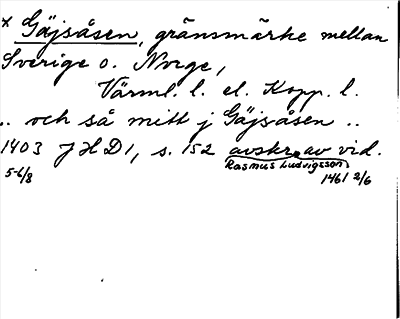 x Gäjsåsen, gränsmärke mellan
Sverige o. Norge,
Värml. l. el. Kopp. l.
.. och så mitt j Gäjsåsen ..
1403 JHD1, s. 152 avskr. av vid.
Rasmus Ludvigsson
5-6/8 1461 2/6